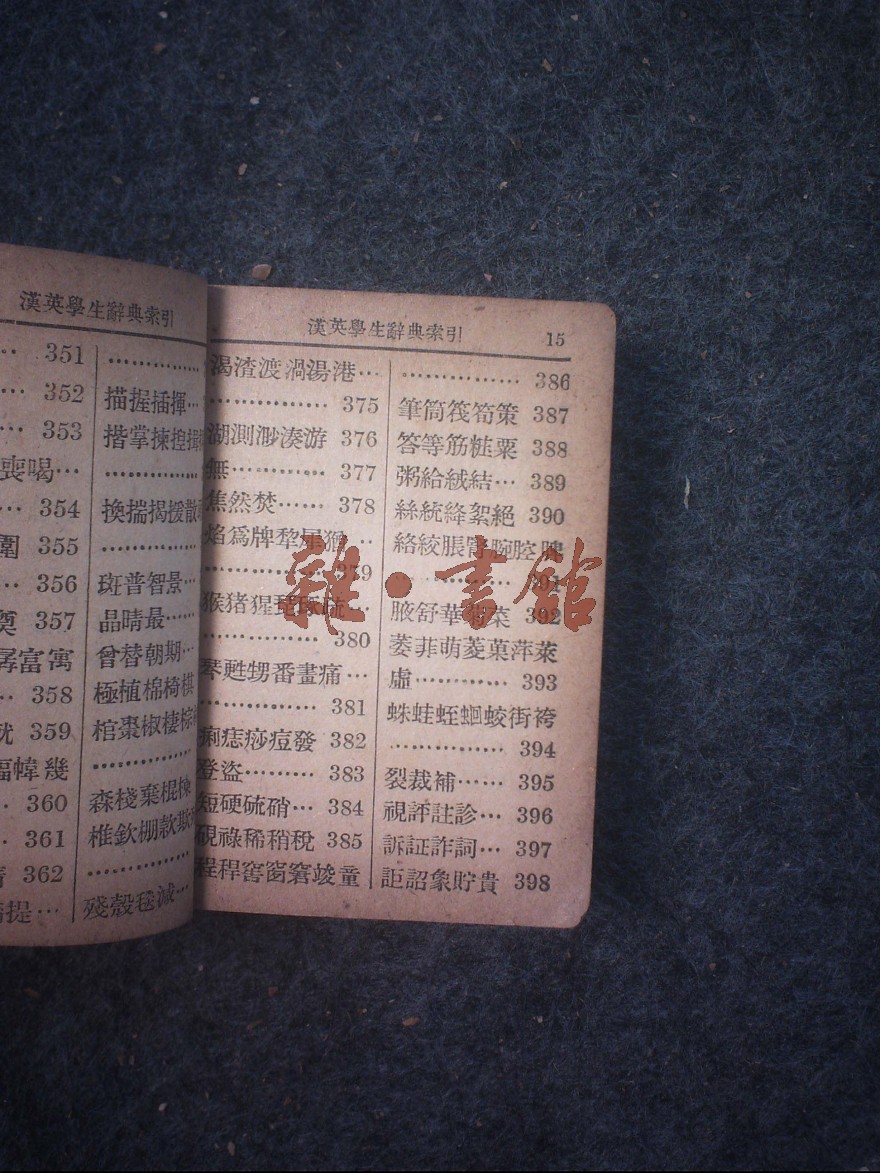 漢英學生辭典索引
… 351
… 352
… 353
喪喝…
… 354
圍 355
… 356
奠 357
孱富寓
… 358
就 359
幅幃幾
… 360
… 361
362
提…
……………
描握插揮…
揩掌揀揑揖
……………
換揣揭援散
……………
斑普智景…
品晴最……
曾替朝期…
極植棉椅棋
棺棗椒棲棕
……………
森棧棄棍棟
椎欽棚款欺
……………
殘殼毯減…
漢英學生辭典索引 15
渴渣渡渦湯港…
…………… 375
湖測渺湊游 376
無………… 377
焦然焚…… 378
焰爲牌犂犀猶…
…………… 379
猴猪猩琵琢琉…
…………… 380
琴甦甥番畫痛…
…………… 381
痢痣痧痘發 382
登盜……… 383
短硬硫硝… 384
硯祿稀稍稅 385
程稈窖窗窘竣童
…………… 386
筆筒筏筍策 387
答等筋粧粟 388
粥給絨結… 389
絲統絳絮絕 390
絡絞脹腎腕腔脾
…………… 391
腋舒華菊菜 392
萎菲萌菱菓萍萊
虛………… 393
蛛蛙蛭蛔蛟街袴
…………… 394
裂裁補…… 395
視評註診… 396
訴証詐詞… 397
詎詔象貯貴 398
雜·書館